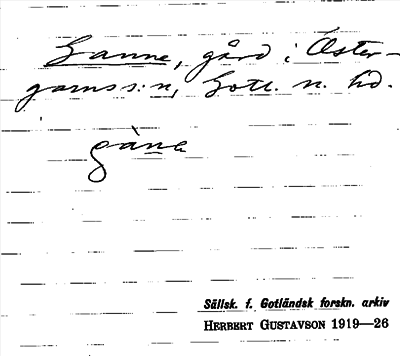 Ganne, gård i Öster-
garns s:n, Gotl. n. hd.
gànε
Sällsk. f. Gotländsk forskn. arkiv
HERBERT GUSTAVSON 1919—26